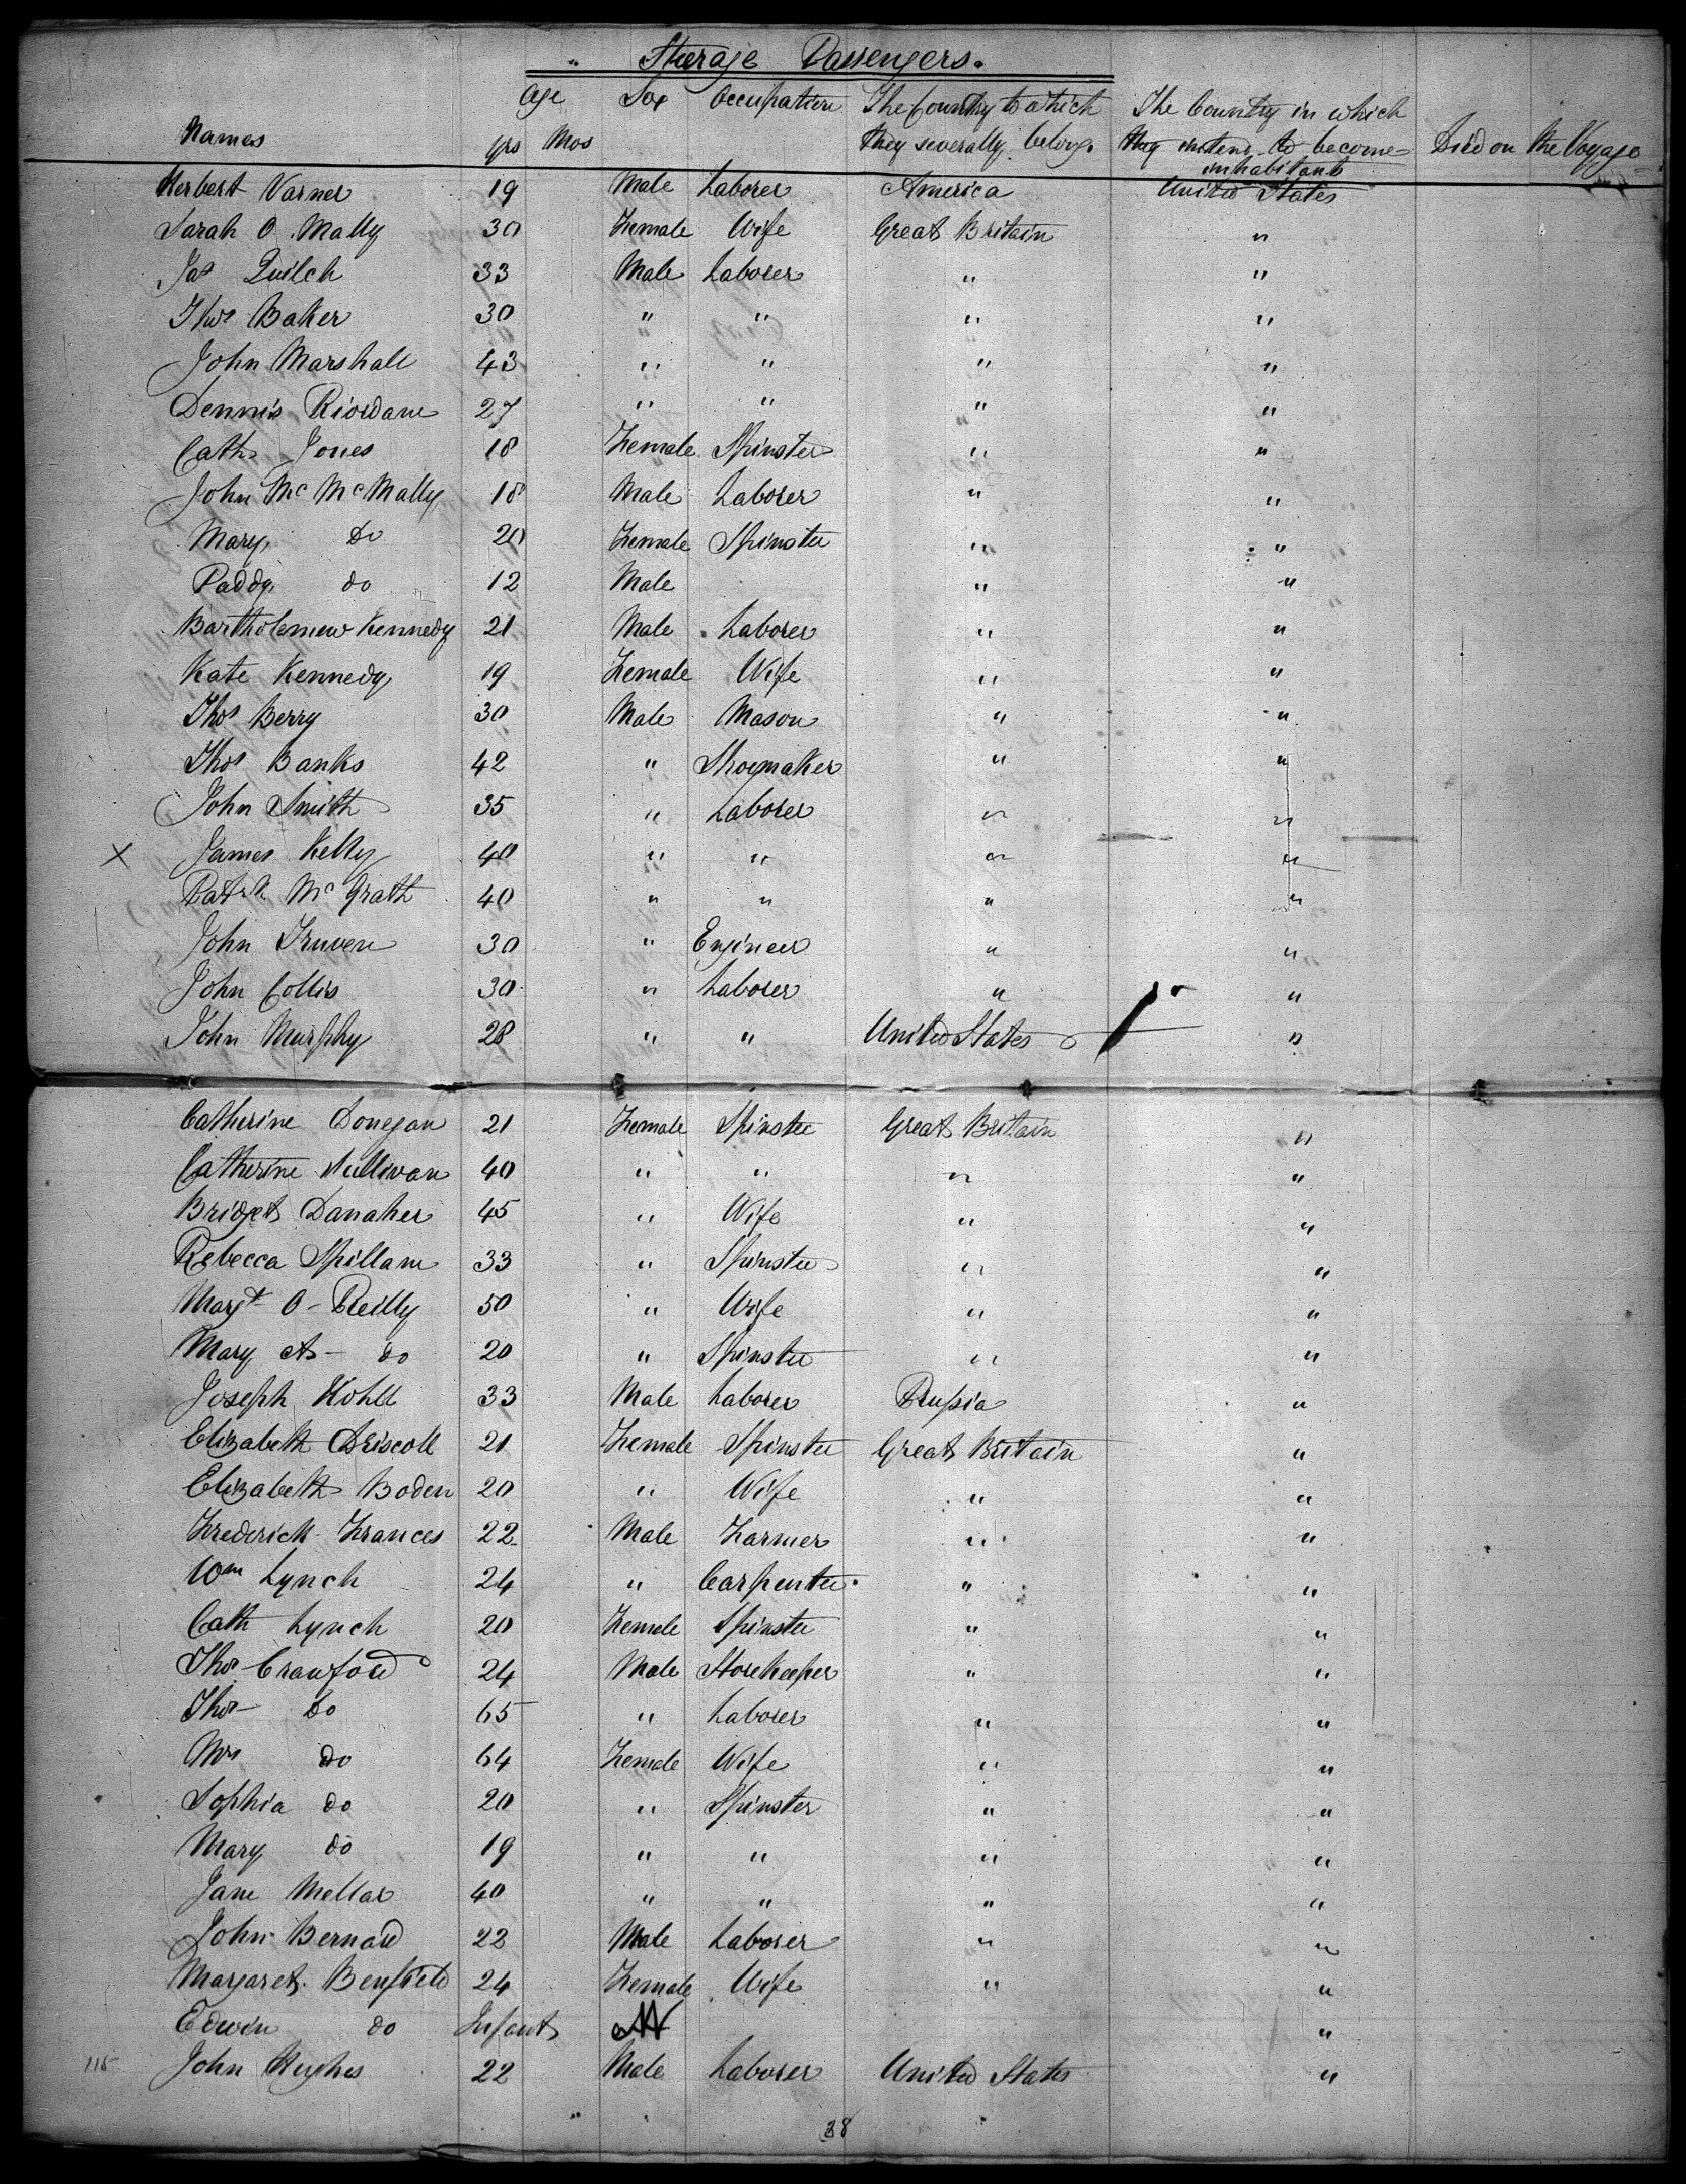 Steerage Passengers.
Names Age yrs Mos Sex Occupation The Country to which they severally belong. The Country in which they intend to become inhabitants Died on the Voyage
Herbert Varner 19 Male Laborer America United States
Sarah O. Mally 30 Female Wife Great Britain "
Jas Quilch 33 Male Laborer " "
Thos Baker 30 " " " "
John Marshall 43 " " " "
Dennis Riordane 27 " " " "
Cath Jones 18 Female Spinster " "
John Mc McMally 18 Male Laborer " "
Mary Do 20 Female Spinster " "
Paddy do 12 Male " "
Bartholemew Kennedy 21 Male Laborer " "
Kate Kennedy 19 Female Wife " "
Thos Berry 30 Male Mason " "
Thos Banks 42 " Shoemaker " "
John Smith 35 " Laborer " "
X James Kelly 40 " " " "
Patrk McGrath 40 " " " "
John 30 " Engineer " "
John Collis 30 " Laborer " "
John Murphy 28 " " United States "
Catherine Donegan 21 Female Spinster Great Britain "
Catherine Sullivan 40 " " " "
Bridget Danaher 45 " Wife " "
Rebecca Spillane 33 " Spinster " "
Margt O-Reilly 50 " Wife " "
Mary A- do 20 " Spinster " "
Joseph Kohll 33 Male Laborer Prussia "
Elizabeth Driscoll 21 Female Spinster Great Britain "
Elizabeth Boden 20 " Wife " "
Frederick Frances 22 Male Farmer " "
Wm Lynch 24 " Carpenter " "
Cath Lynch 20 Female Spinster " "
Thos Crawford 24 Male Storekeeper " "
Thos Do 65 " Laborer " "
Mrs Do 64 Female Wife " "
Sophia do 20 " Spinster " "
Mary do 19 " " " "
Jane Mellar 40 " " " "
John Bernard 22 Male Laborer " "
Margaret Benfield 24 Female Wife " "
Edwin do Infant M "
115 John Hughes 22 Male Laborer United States "
38